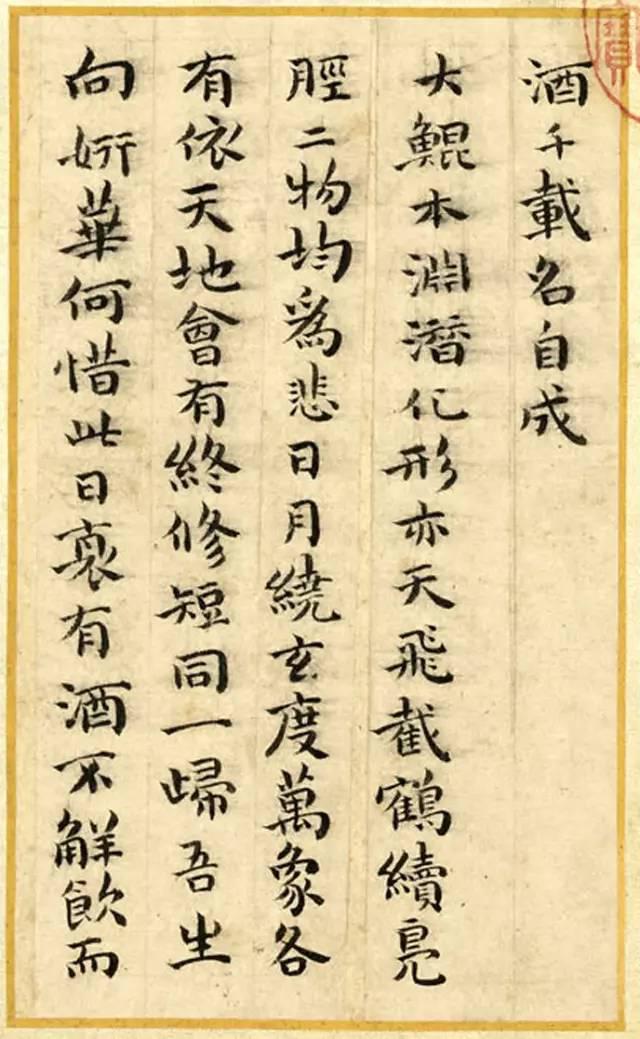 酒千載名自成
大鯤本淵潛化形亦天飛截鶴續鳧
脛二物均為悲日月繞玄度萬象各
有依天地會有終修短同一歸吾生
向姸華何惜此日衰有酒不解飲而